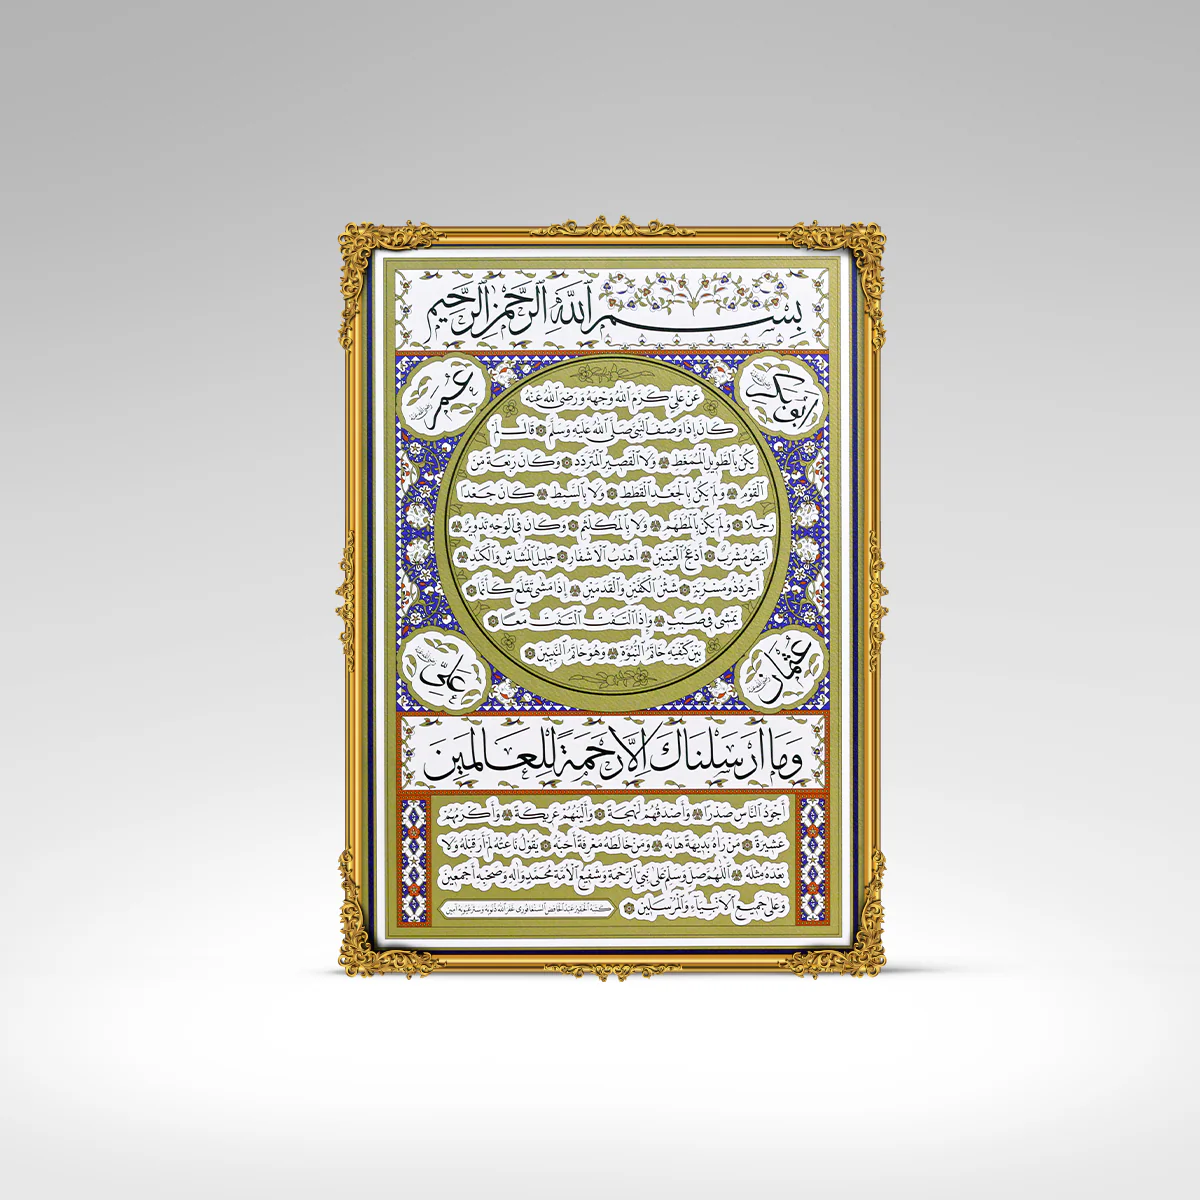 بسم الله الرحمن الرحيم
ابو بكر رضي الله عنه
عمر رضي الله عنه
عَنْ عَلِيٍّ كَرَّمَ اللهُ وَجْهَهُ وَرَضِيَ اللهُ عَنْهُ
كَانَ إِذَا وَصَفَ النَّبِيَّ صَلَّى اللهُ عَلَيْهِ وَسَلَّمَ قَالَ لَمْ
يَكُنْ بِالطَّوِيلِ الْمُمَّغِطِ وَلَا الْقَصِيرِ الْمُتَرَدِّدِ وَكَانَ رَبْعَةً مِنَ
الْقَوْمِ وَلَمْ يَكُنْ بِالْجَعْدِ الْقَطَطِ وَلَا بِالسَّبِطِ كَانَ جَعْدًا
رَجِلًا وَلَمْ يَكُنْ بِالْمُطَهَّمِ وَلَا بِالْمُكَلْثَمِ وَكَانَ فِي الْوَجْهِ تَدْوِيرٌ
أَبْيَضُ مُشْرَبٌ أَدْعَجُ الْعَيْنَيْنِ أَهْدَبُ الْأَشْفَارِ جَلِيلُ الْمُشَاشِ وَالْكَتَدِ
أَجْرَدُ ذُو مَسْرُبَةٍ شَثْنُ الْكَفَّيْنِ وَالْقَدَمَيْنِ إِذَا مَشَى تَقَلَّعَ كَأَنَّمَا
يَمْشِي فِي صَبَبٍ وَإِذَا الْتَفَتَ الْتَفَتَ مَعًا
بَيْنَ كَتِفَيْهِ خَاتَمُ النُّبُوَّةِ وَهُوَ خَاتَمُ النَّبِيِّينَ
عثمان رضي الله عنه
علي رضي الله عنه
وَمَا أَرْسَلْنَاكَ إِلَّا رَحْمَةً لِلْعَالَمِينَ
أَجْوَدُ النَّاسِ صَدْرًا وَأَصْدَقُهُمْ لَهْجَةً وَأَلْيَنُهُمْ عَرِيكَةً وَأَكْرَمُهُمْ
عَشِيرَةً مَنْ رَآهُ بَدِيهَةً هَابَهُ وَمَنْ خَالَطَهُ مَعْرِفَةً أَحَبَّهُ يَقُولُ نَاعِتُهُ لَمْ أَرَ قَبْلَهُ وَلَا
بَعْدَهُ مِثْلَهُ اللَّهُمَّ صَلِّ وَسَلِّمْ عَلَى نَبِيِّ الرَّحْمَةِ وَشَفِيعِ الْأُمَّةِ مُحَمَّدٍ وَآلِهِ وَصَحْبِهِ أَجْمَعِينَ
وَعَلَى جَمِيعِ الْأَنْبِيَاءِ وَالْمُرْسَلِينَ
كتبه الحقير عبد الحافظ غفر الله ذنوبه وستر عيوبه آمين